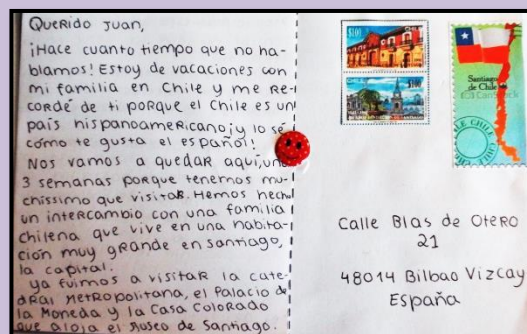 Querido Juan,
¡Hace cuanto tiempo que no ha-
blamos! Estoy de vacaciones con
mi familia en Chile y me re-
cordé de ti porque el Chile es un
país hispanoamericano ¡y lo sé
cómo te gusta el español!
Nos vamos a quedar aquí, un
3 semanas porque tenemos mu-
chíssimo que visitar. Hemos hech
un intercambio con una familia
chilena que vive en una habita-
ción muy grande en Santiago,
la capital.
Ya fuimos a visitar la cate-
dral Metropolitana, el Palacio de
la Moneda y la Casa Colorado
que aloja el Museo de Santiago.
CHILE
$100
CHILE
$100
Santiago
de Chile
CHILE
Calle Blas de Otero
21
48014 Bilbao Vizcay
España